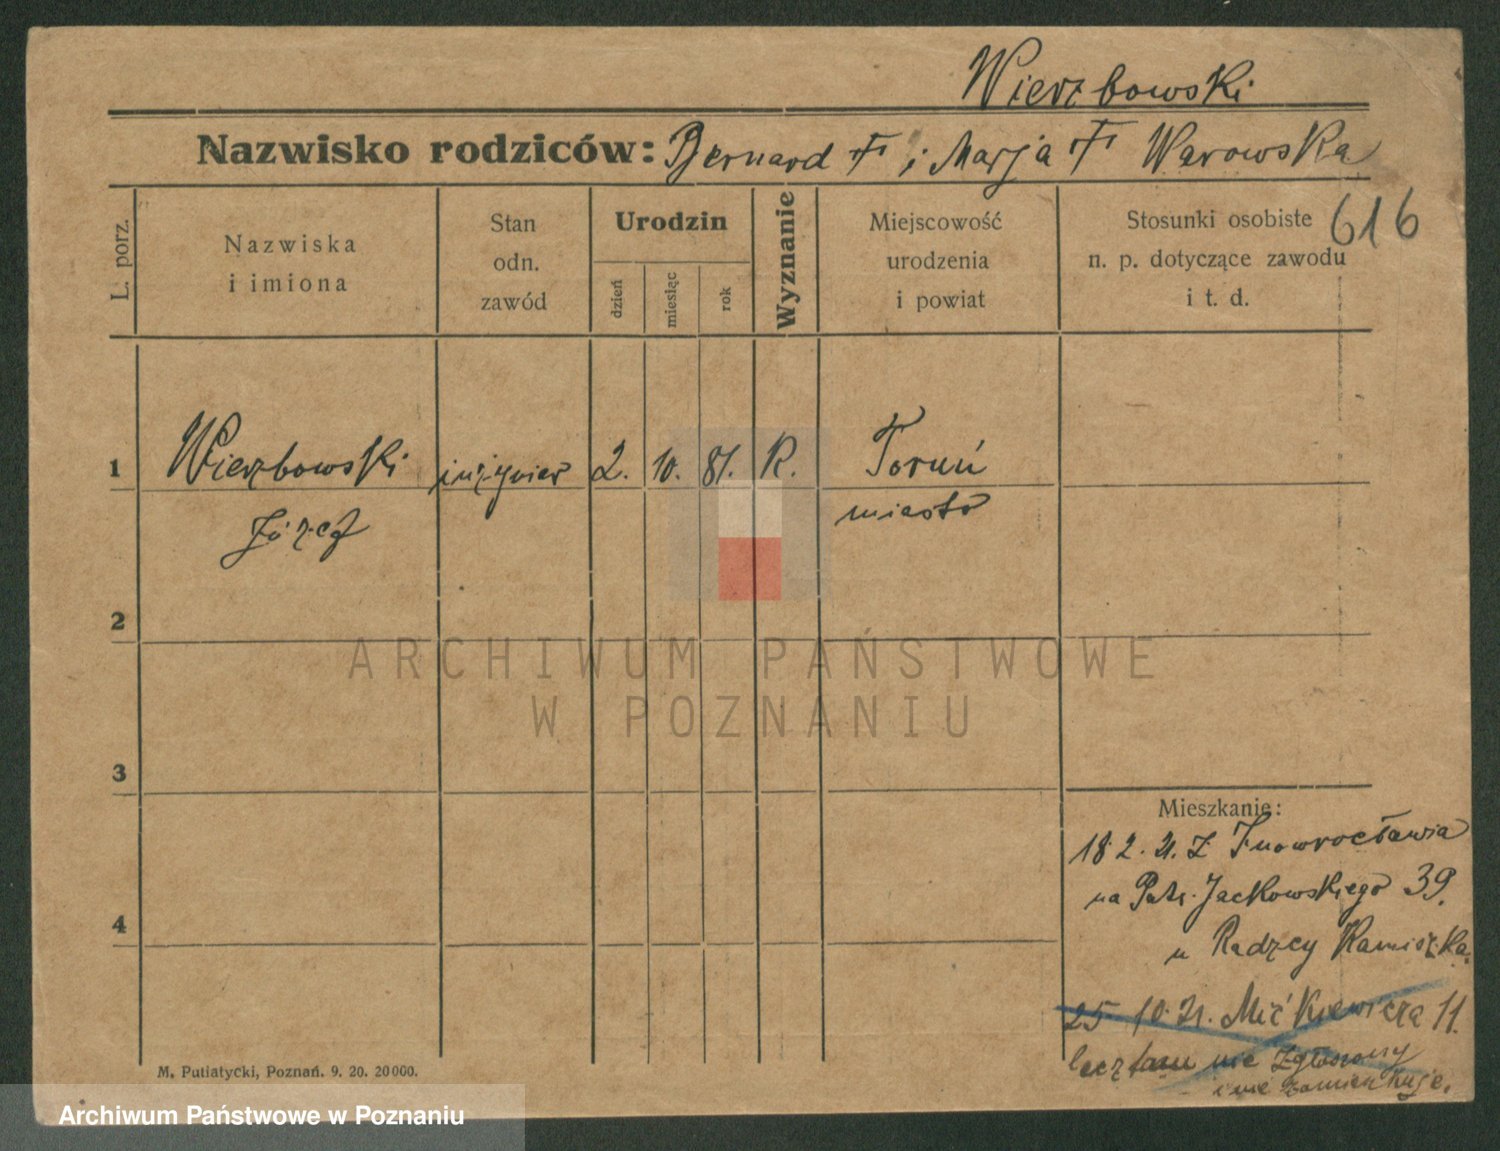 Wierzbowski
Nazwisko rodziców: Bernard i Marja Warowska
616
L. porz.
Nazwiska
i imiona
Stan
odn.
zawód
Urodzin
dzień
miesiąc
rok
Wyznanie
Miejscowość
urodzenia
i powiat
Stosunki osobiste
n. p. dotyczące zawodu
i t. d.
1 Wierzbowski inżynier 2. 10. 81. R. Toruń
Józef miasto
2
3
4
Mieszkanie:
18 2. 21. z Inowrocławia
na Patr. Jackowskiego 39.
u Radzcy
25 10. 21. Mickiewicza 11.
lecz tam nie zgłoszony
i nie zamieszkuje.
M. Putiatycki, Poznań. 9. 20. 20000.
ARCHIWUM PAŃSTWOWE
W POZNANIU
Archiwum Państwowe w Poznaniu